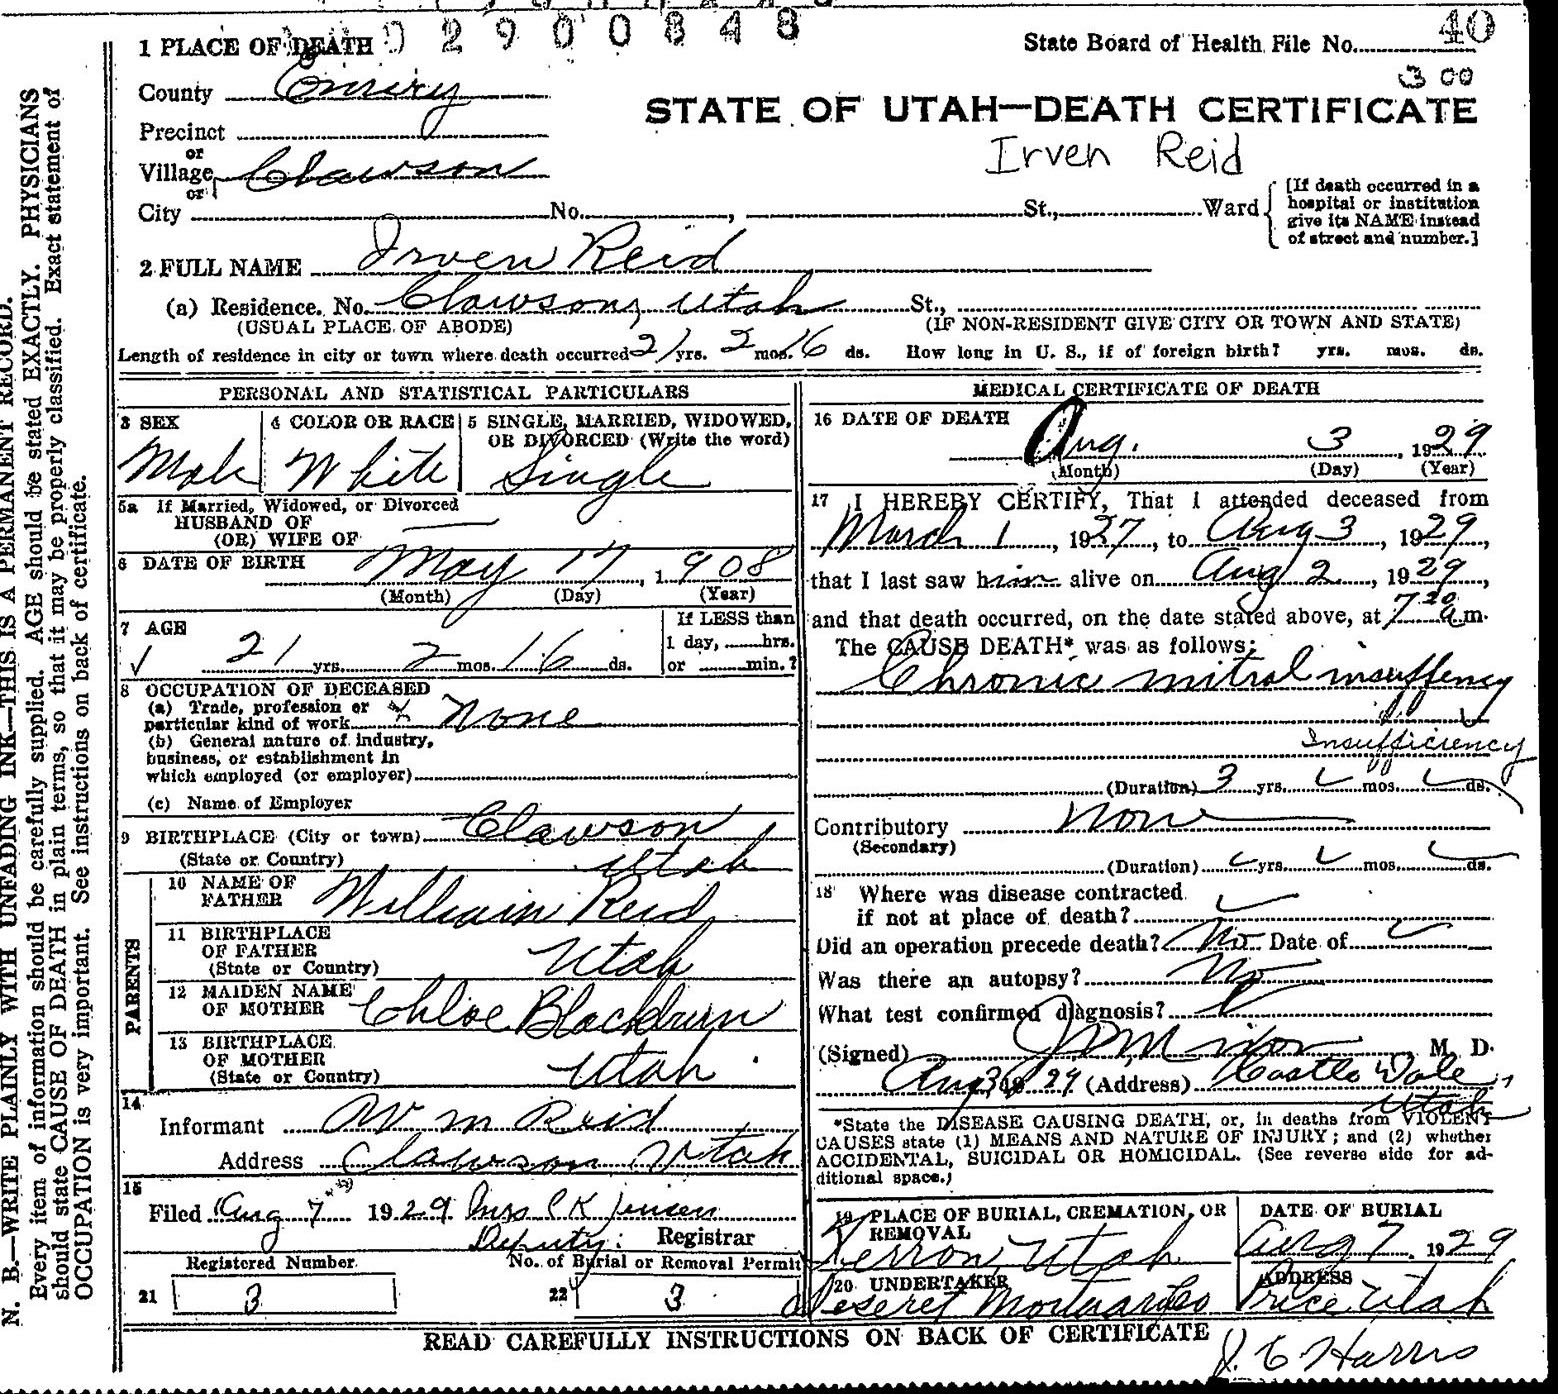 0 2 9 0 0 8 4 8
1 PLACE OF DEATH
State Board of Health File No. 40
3 00
County Emery
STATE OF UTAH—DEATH CERTIFICATE
Precinct
or
Irven Reid
Village Clawson
or
City No. , St., Ward
[If death occurred in a
hospital or institution
give its NAME instead
of street and number.]
2 FULL NAME Irven Reid
(a) Residence. No. Clawson, Utah St.,
(USUAL PLACE OF ABODE) (IF NON-RESIDENT GIVE CITY OR TOWN AND STATE)
Length of residence in city or town where death occurred 21 yrs. 2 mos. 16 ds. How long in U. S., if of foreign birth? yrs. mos. ds.
PERSONAL AND STATISTICAL PARTICULARS
3 SEX
Male
4 COLOR OR RACE
White
5 SINGLE, MARRIED, WIDOWED,
OR DIVORCED (Write the word)
Single
5a If Married, Widowed, or Divorced
HUSBAND OF
(OR) WIFE OF
6 DATE OF BIRTH May 17, 1908
(Month) (Day) (Year)
7 AGE
21 yrs. 2 mos. 16 ds.
If LESS than
1 day, hrs.
or min.?
8 OCCUPATION OF DECEASED
(a) Trade, profession or
particular kind of work None
(b) General nature of industry,
business, or establishment in
which employed (or employer)
(c) Name of Employer
9 BIRTHPLACE (City or town) Clawson
(State or Country) Utah
PARENTS
10 NAME OF
FATHER William Reid
11 BIRTHPLACE
OF FATHER Utah
(State or Country)
12 MAIDEN NAME
OF MOTHER Chloe Blackburn
13 BIRTHPLACE
OF MOTHER Utah
(State or Country)
14
Informant Wm Reid
Address Clawson Utah
15
Filed Aug 7 1929 Mrs P K Jensen
Deputy. Registrar
Registered Number No. of Burial or Removal Permit
21 3 22 3
MEDICAL CERTIFICATE OF DEATH
16 DATE OF DEATH
Aug. 3, 1929
(Month) (Day) (Year)
17 I HEREBY CERTIFY, That I attended deceased from
March 1, 1927, to Aug 3, 1929,
that I last saw him alive on Aug 2, 1929,
and that death occurred, on the date stated above, at 7 20 a.m.
The CAUSE DEATH* was as follows:
Chronic mitral insuffency
Insufficiency
(Duration) 3 yrs. mos. ds.
Contributory None
(Secondary)
(Duration) yrs. mos. ds.
18 Where was disease contracted
if not at place of death?
Did an operation precede death? No Date of
Was there an autopsy? No
What test confirmed diagnosis?
(Signed) M. D.
Aug 3, 1929 (Address) Castle Dale,
Utah
*State the DISEASE CAUSING DEATH, or, in deaths from VIOLENT
CAUSES state (1) MEANS AND NATURE OF INJURY; and (2) whether
ACCIDENTAL, SUICIDAL OR HOMICIDAL. (See reverse side for ad-
ditional space.)
19 PLACE OF BURIAL, CREMATION, OR
REMOVAL
Ferron, Utah
DATE OF BURIAL
Aug 7, 1929
20 UNDERTAKER
Deseret Mortuary Co
ADDRESS
Price Utah
READ CAREFULLY INSTRUCTIONS ON BACK OF CERTIFICATE
J. E Harris
N. B.—WRITE PLAINLY WITH UNFADING INK—THIS IS A PERMANENT RECORD.
Every item of information should be carefully supplied. AGE should be stated EXACTLY. PHYSICIANS
should state CAUSE OF DEATH in plain terms, so that it may be properly classified. Exact statement of
OCCUPATION is very important. See instructions on back of certificate.